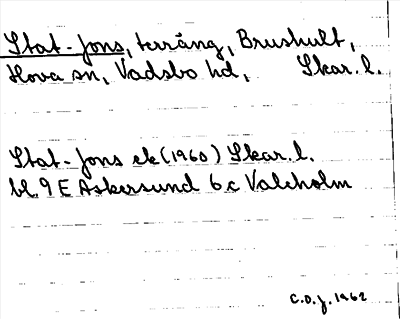 Stat-Jons, terräng, Brushult,
Hova sn, Vadsbo hd, Skar. l.
Stat-Jons ek (1960) Skar. l.
bl. 9 E Askersund 6 c Valeholm
C.O.J. 1962